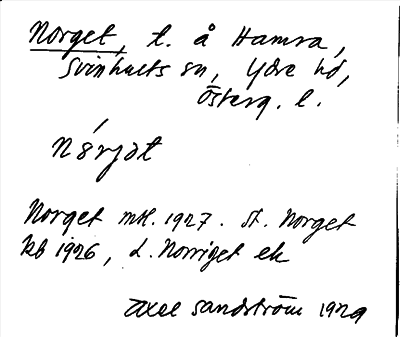 Norget, t. å Hamra,
Svinhults sn, Ydre hd,
Österg. l.
nǒrjət
Norget mtl. 1927. st. Norget
kb 1926, d. Norriget ek
Axel Sandström 1929